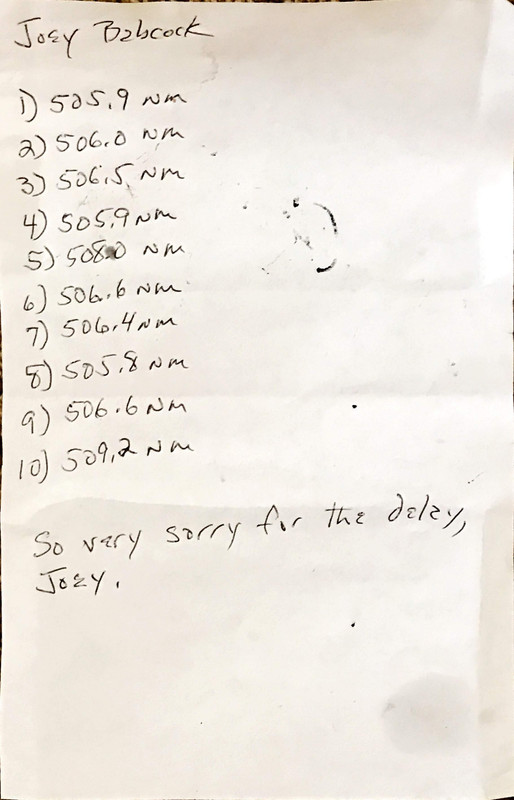 Joey Babcock
1) 505.9 nm
2) 506.0 nm
3) 506.5 nm
4) 505.9 nm
5) 508.0 nm
6) 506.6 nm
7) 506.4 nm
8) 505.8 nm
9) 506.6 nm
10) 509.2 nm
So very sorry for the delay,
Joey.